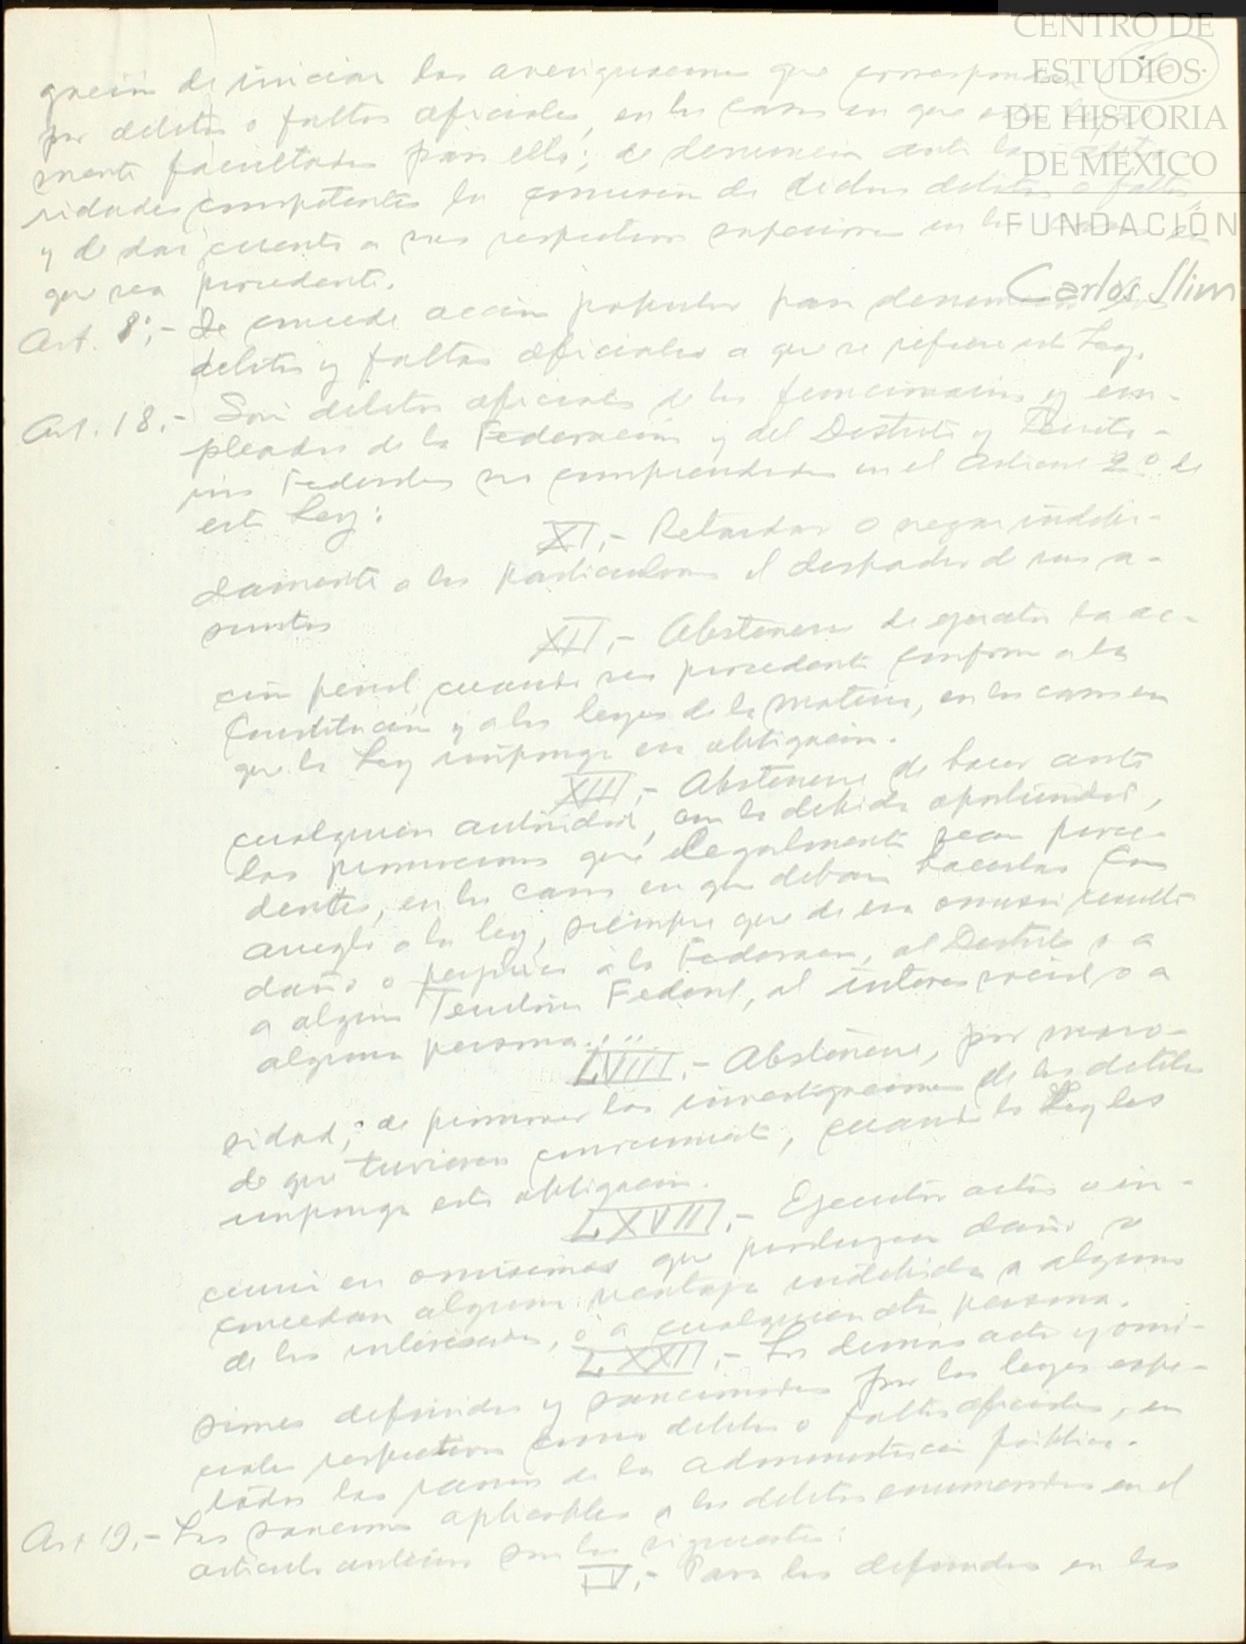 CENTRO DE
ESTUDIOS
DE HISTORIA
DE MÉXICO
FUNDACIÓN
Carlos Slim
gación de iniciar las averiguaciones que correspondan
por delitos o faltas oficiales, en los casos en que estén legal-
mente facultados para ello; de denunciar ante las auto-
ridades competentes la comisión de dichos delitos o faltas,
y de dar cuenta a sus respectivos superiores en los casos en
que sea procedente.
Art. 8º.- Se concede acción popular para denunciar los
delitos y faltas oficiales a que se refiere esta Ley.
Art. 18.- Son delitos oficiales de los funcionarios y em-
pleados de la Federación y del Distrito y Territo-
rios Federales no comprendidos en el artículo 2º de
esta Ley:
XI.- Retardar o negar indebi-
damente a los particulares el despacho de sus a-
suntos
XII.- Abstenerse de ejercitar la ac-
ción penal, cuando sea procedente conforme a la
Constitución y a las leyes de la materia, en los casos en
que la Ley imponga esa obligación.
XIII.- Abstenerse de hacer ante
cualquier autoridad, con la debida oportunidad,
las promociones que legalmente sean proce-
dentes, en los casos en que deban hacerlas con
arreglo a la ley, siempre que de esa omisión resulte
daño o perjuicio a la Federación, al Distrito o a
a algún Territorio Federal, al interés social o a
alguna persona.....
LVIII.- Abstenerse, por moro-
sidad, de promover las investigaciones de los delitos
de que tuvieren conocimiento, cuando la Ley les
imponga esta obligación.
LXVIII.- Ejecutar actos o in-
currir en omisiones que produzcan daño o
concedan alguna ventaja indebida a alguno
de los interesados, o a cualquier otra persona.
LXXII.- Los demás actos y omi-
siones definidos y sancionados por las leyes espe-
ciales respectivas como delitos o faltas oficiales, en
todos los ramos de la administración pública.
Art 19.- Las sanciones aplicables a los delitos enumerados en el
artículo anterior son las siguientes:
IV.- Para los definidos en las